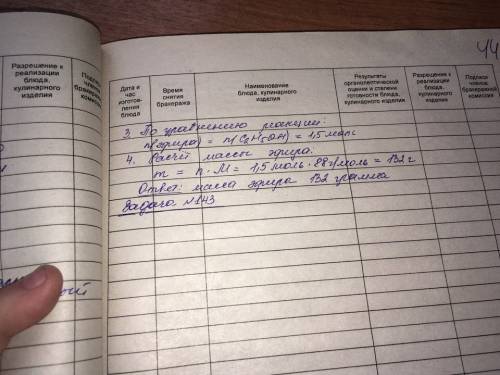 Разрешение к
реализации
блюда,
кулинарного
изделия
44
Дата и
час
изготов-
ления
блюда
Время
снятия
бракеража
Наименование
блюда, кулинарного
изделия
Результаты
органолептической
оценки и степени
готовности блюда,
кулинарного изделия
Разрешение к
реализации
блюда,
кулинарного
изделия
Подписи
членов
бракеражной
комиссии
3. По уравнению реакции:
n(эфира) = n(C₂H₅OH) = 1,5 моль
4. Расчёт массы эфира:
m = n · M = 1,5 моль · 88 г/моль = 132 г
Ответ: масса эфира 132 грамма
Задача №143